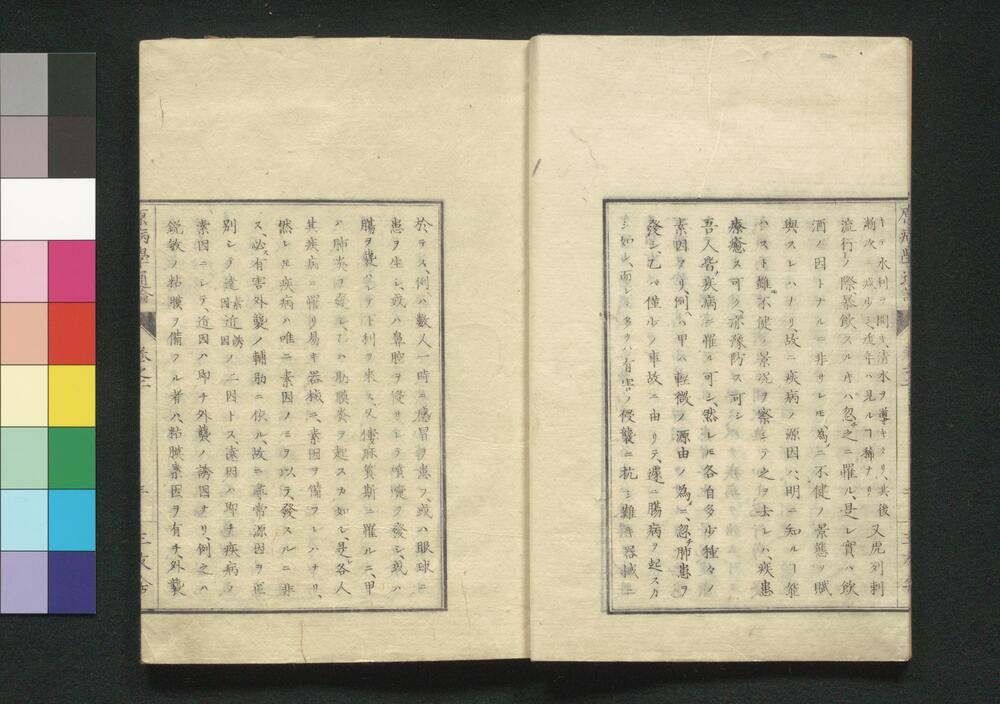 キテ水利ヲ開キ、清水ヲ導キタリ、其後
漸次ニ減少シ、近年ハ見ルヿ稀ナリ、又虎列剌
流行ノ際暴飲スルキハ忽チ之ニ罹ル、是レ實ハ飲
酒ノ因トナルニ非サレモ、為ニ不健ノ景態ヲ賦
與スレハナリ故ニ疾病ノ源因ハ、明ニ知ルヿ能
ハスト雖不健ノ景況ヲ察シテ之ヲ去レハ、疾患
療癒ス可ク、亦豫防ス可シ
吾人皆疾病ニ罹ル可シ、然レモ各自多少種々ノ
素因アリ、例ハ甲ハ輕微ノ源由ノ為ニ、忽チ肺患ヲ
發シ、乙ハ僅少ノ事故ニ由リテ、遽ニ腸病ヲ起スカ
シ如シ、而シテ多クハ有害ノ侵襲ニ抗シ難キ器械ニ
於テス、例ハ數人一時ニ感冒ヲ患フ、或ハ眼球ニ
患ヲ生シ、或ハ鼻腔ヲ侵サレテ噴嚏ヲ發シ、或ハ
腸ヲ襲ハレテ下利ヲ來ス、又僂麻質斯ニ罹ルニ、甲
ハ肺炎ヲ發シ、乙ハ肋膜炎ヲ起スカ如シ、是レ各人
其疾病ニ罹リ易キ器械ニ、素因ヲ備フレハナリ、
然レモ疾病ハ唯ニ素因ノミヲ以テ、發スルニ非
ス、必ス有害外襲ノ輔助ニ依ル、故ニ尋常源因ヲ區
別シテ遠因素因近因誘因ノ二因トス、遠因ハ即チ疾病ノ
素因ニシテ、近因ハ即チ外襲ノ誘因ナリ、例之ハ
鋭敏ノ粘膜ヲ備フル者ハ、粘膜素因ヲ有チ、外襲
原病學通論 卷之二 三友舎